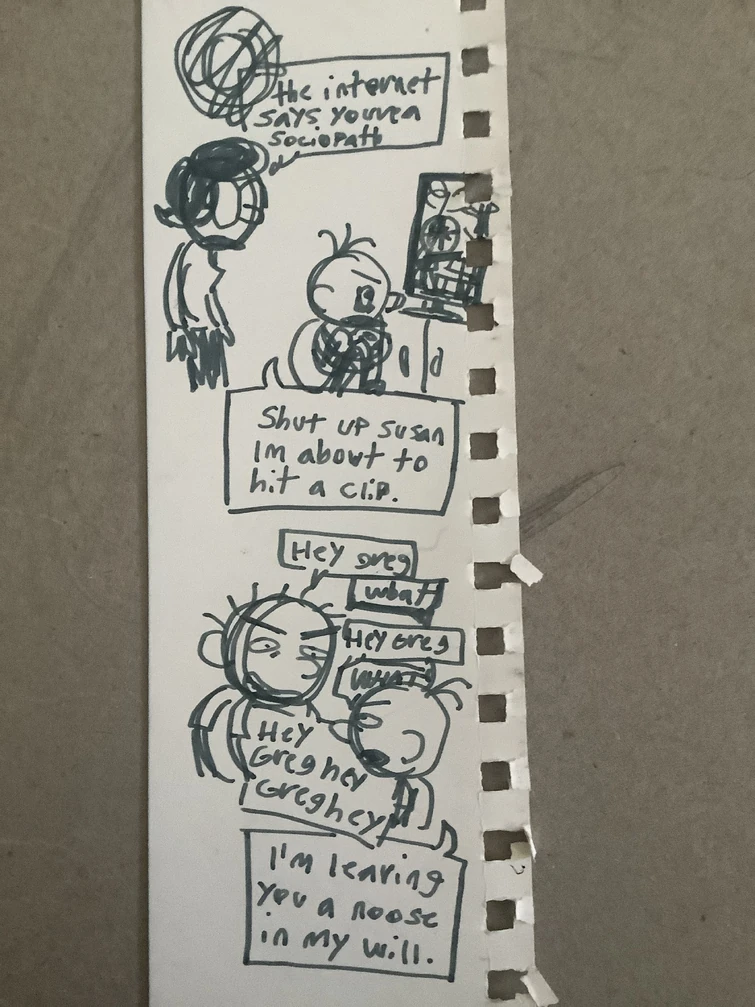 the internet
says you're a
sociopath
Shut up susan
Im about to
hit a clip.
Hey greg
what
Hey Greg
what
Hey
Greg hey
Greg hey
I'm leaving
you a noose
in my will.